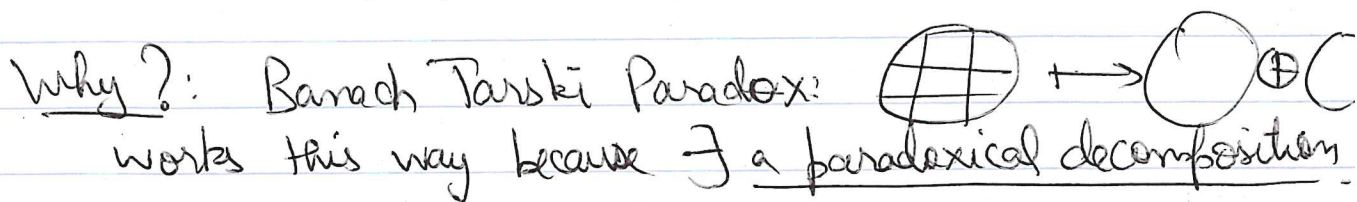 Why?: Banach Tarski Paradox: ⟼ ⊕
works this way because ∃ a paradoxical decomposition.